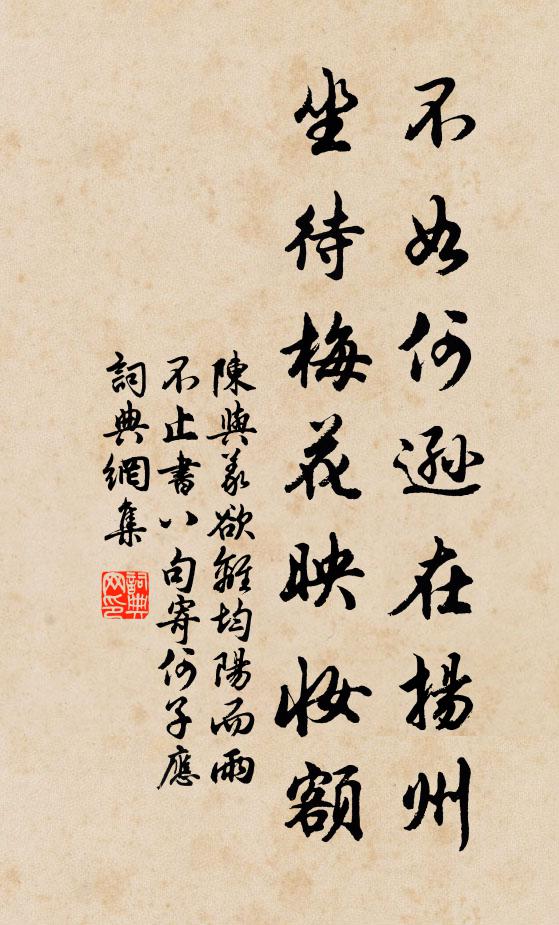 不如何遜在揚州
坐待梅花映妝額
陳與義欲離均陽而雨
不止書八句寄何子應
詞典網集
詞典
网印